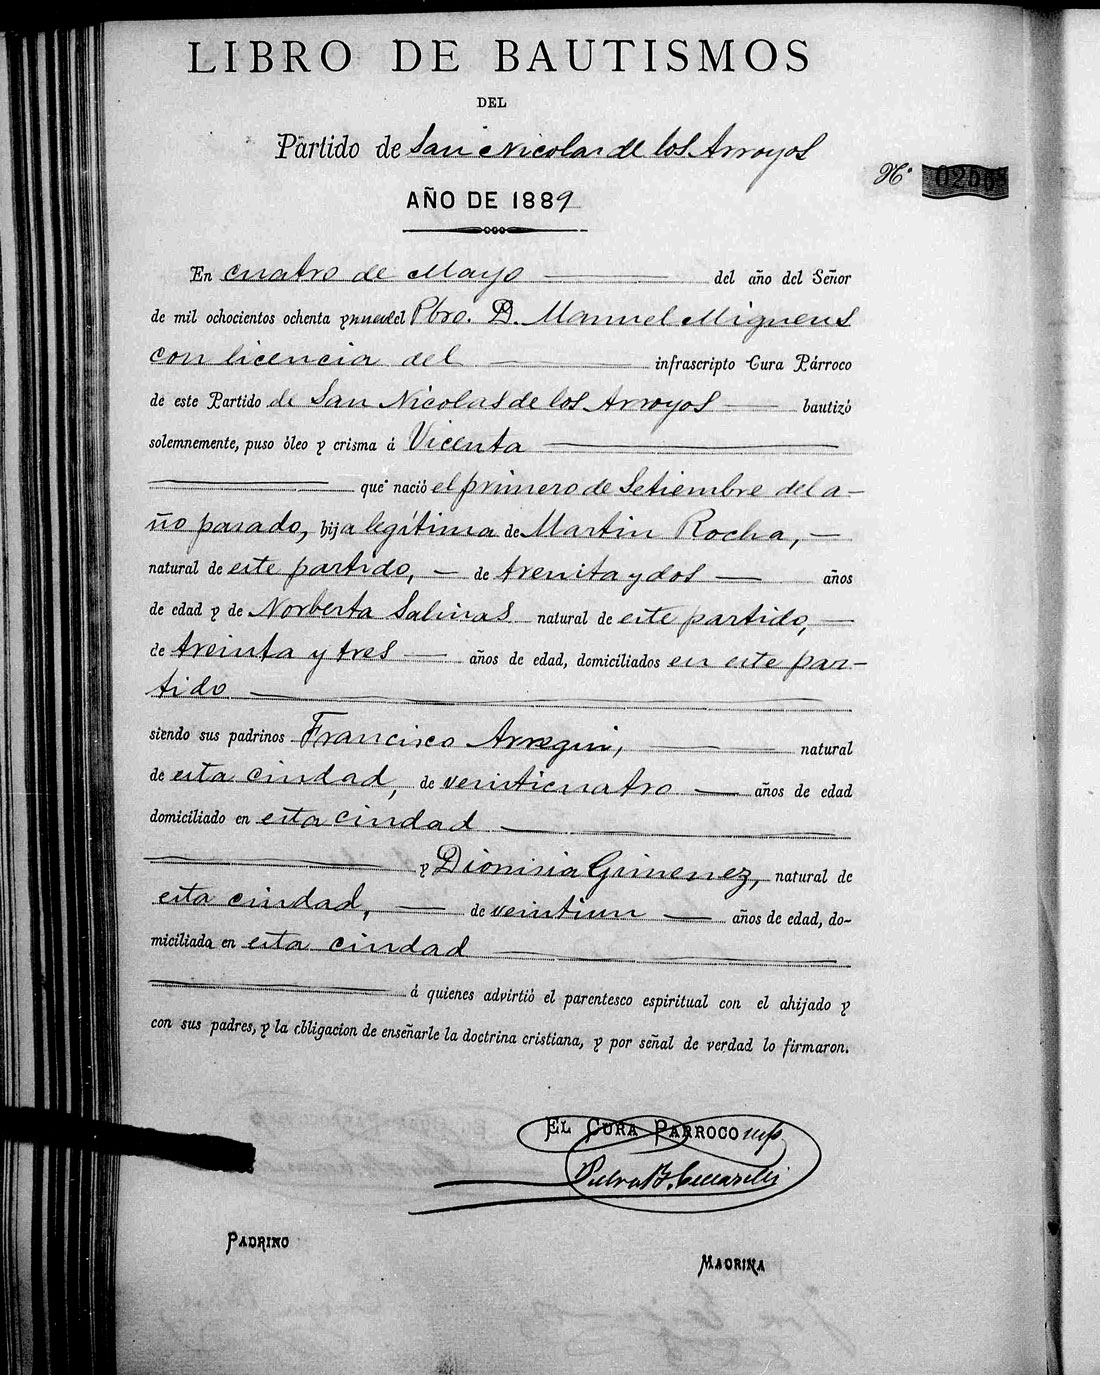 LIBRO DE BAUTISMOS
DEL
Partido de San Nicolas de los Arroyos
Nº 0266
AÑO DE 1889
En cuatro de Mayo del año del Señor
de mil ochocientos ochenta y nueve el Pbro. D. Manuel Miguens
con licencia del infrascripto Cura Párroco
de este Partido de San Nicolas de los Arroyos bautizó
solemnemente, puso óleo y crisma á Vicenta
que nació el primero de Setiembre del a-
ño pasado, hija legítima de Martin Rocha,
natural de este partido, de treinta y dos años
de edad y de Norberta Salinas natural de este partido,
de treinta y tres años de edad, domiciliados en este par-
tido
siendo sus padrinos Francisco Arregui, natural
de esta ciudad, de veinticuatro años de edad
domiciliado en esta ciudad
y Dionisia Gimenez, natural de
esta ciudad, de veintiun años de edad, do-
miciliada en esta ciudad
á quienes advirtió el parentesco espiritual con el ahijado y
con sus padres, y la obligacion de enseñarle la doctrina cristiana, y por señal de verdad lo firmaron.
EL CURA PARROCO
Pedro B. Ceccarelli
PADRINO
MADRINA